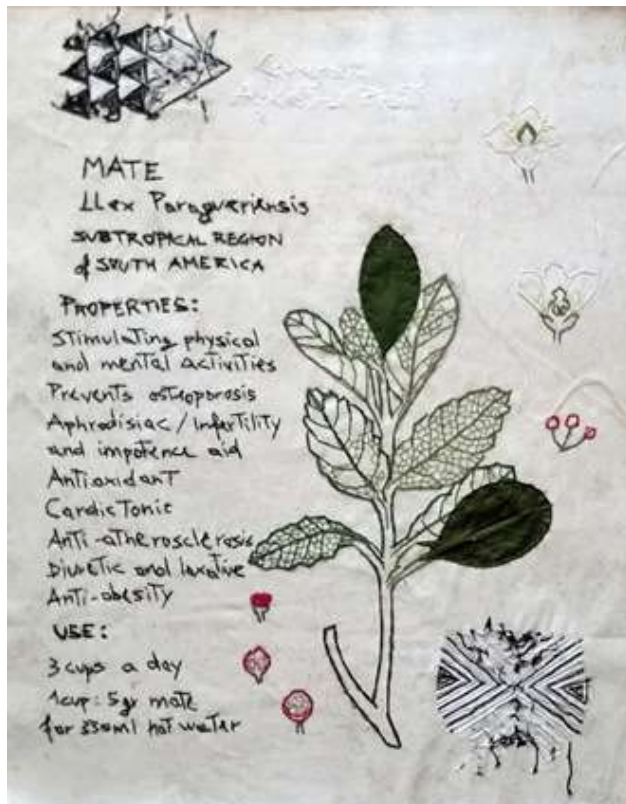 MATE
LLex Paraguariensis
SUBTROPICAL REGION
of SOUTH AMERICA
PROPERTIES:
Stimulating physical
and mental activities
Prevents osteoporosis
Aphrodisiac / Infertility
and impotence aid
Antioxidant
CardicTonic
Anti-atherosclerosis
Diuretic and laxative
Anti-obesity
USE:
3 cups a day
1cup: 5gr mate
for 350ml hot water